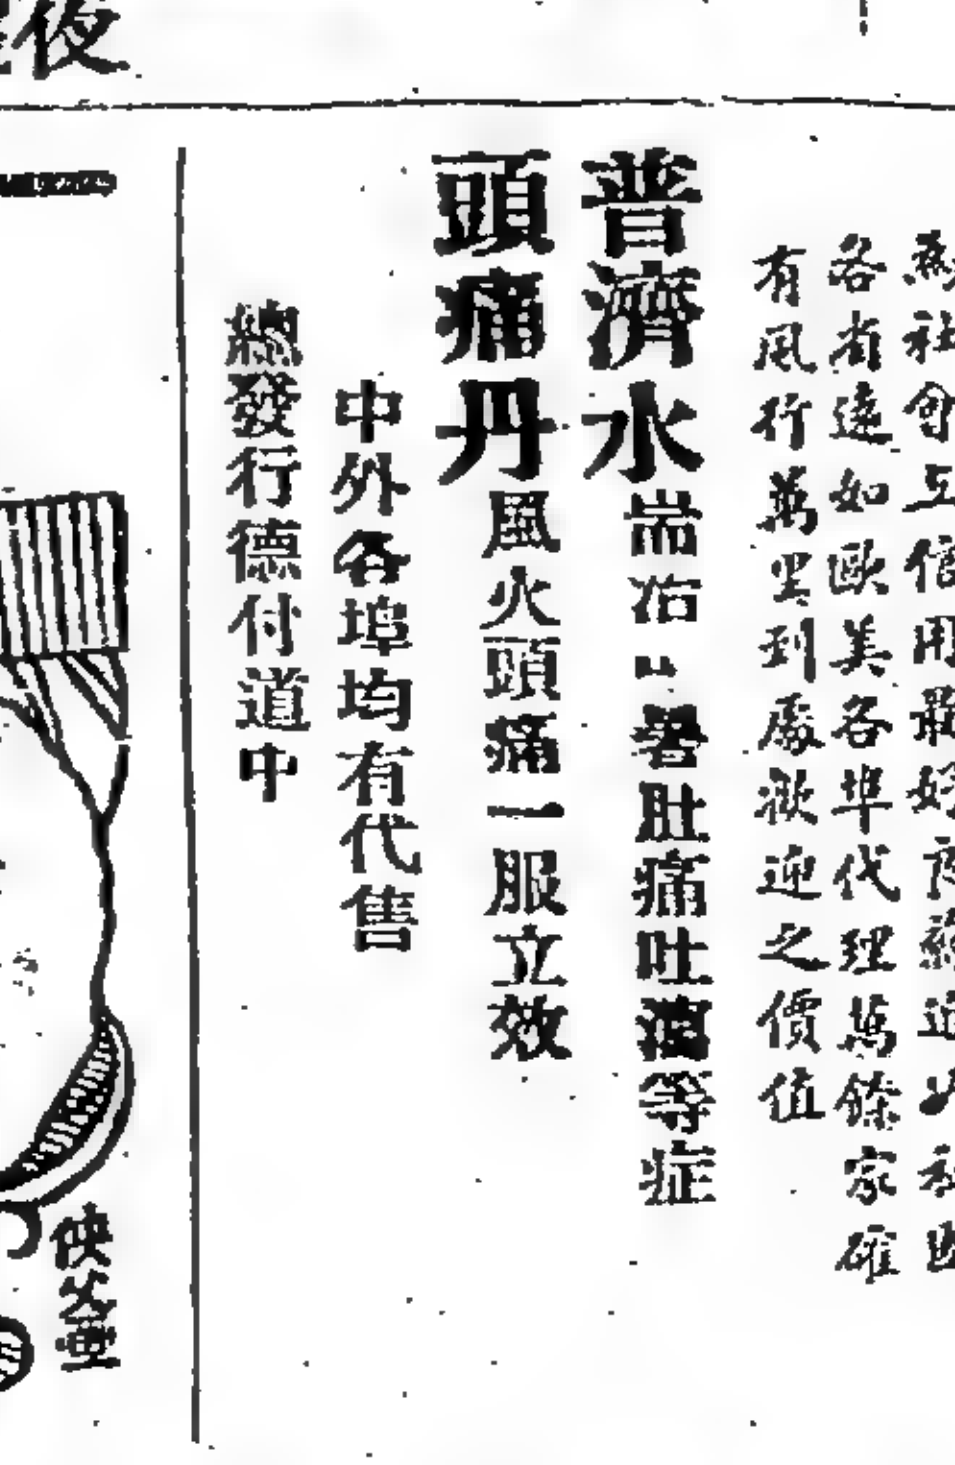 夜
社會上信用
各省遠如歐美各埠代理萬餘家確
有風行萬里到處歡迎之價值
普濟水 耑治 暑肚痛吐瀉等症
頭痛丹 風火頭痛一服立效
中外各埠均有代售
總發行德付道中